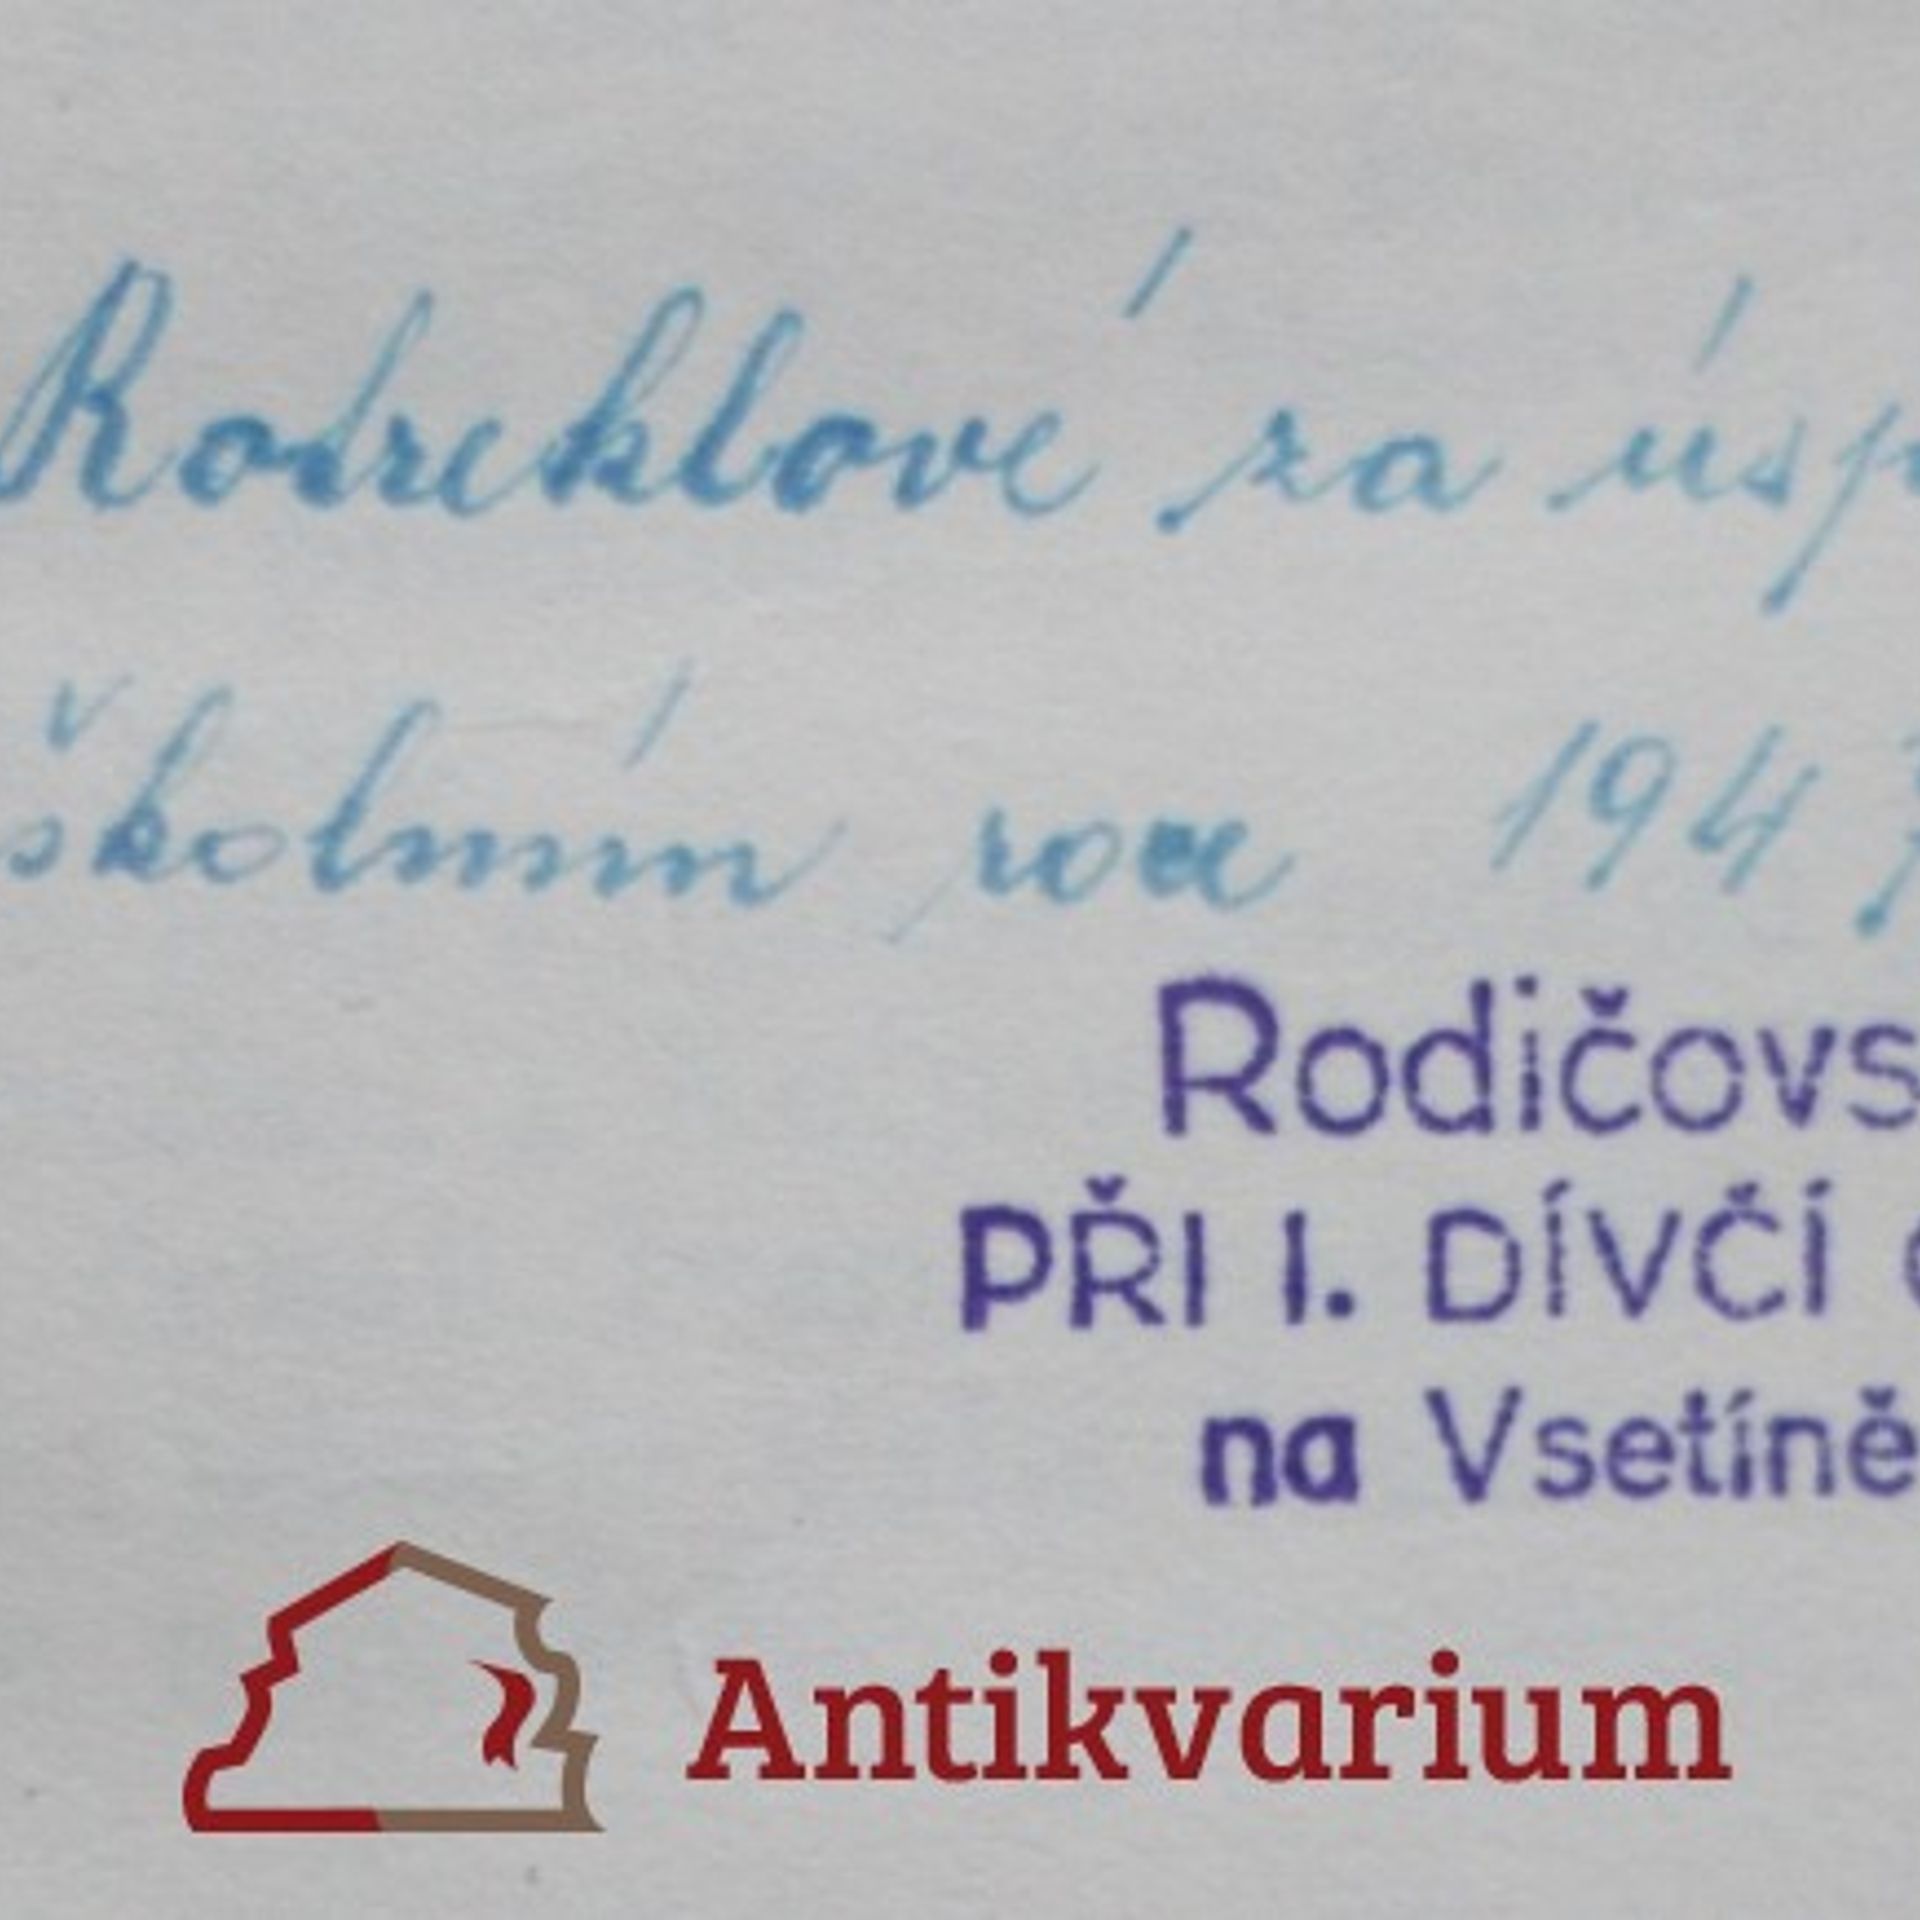 Rotreklové za úsp
školním roce 194
Rodičovs
PŘI I. DÍVČÍ
na Vsetíně
Antikvarium